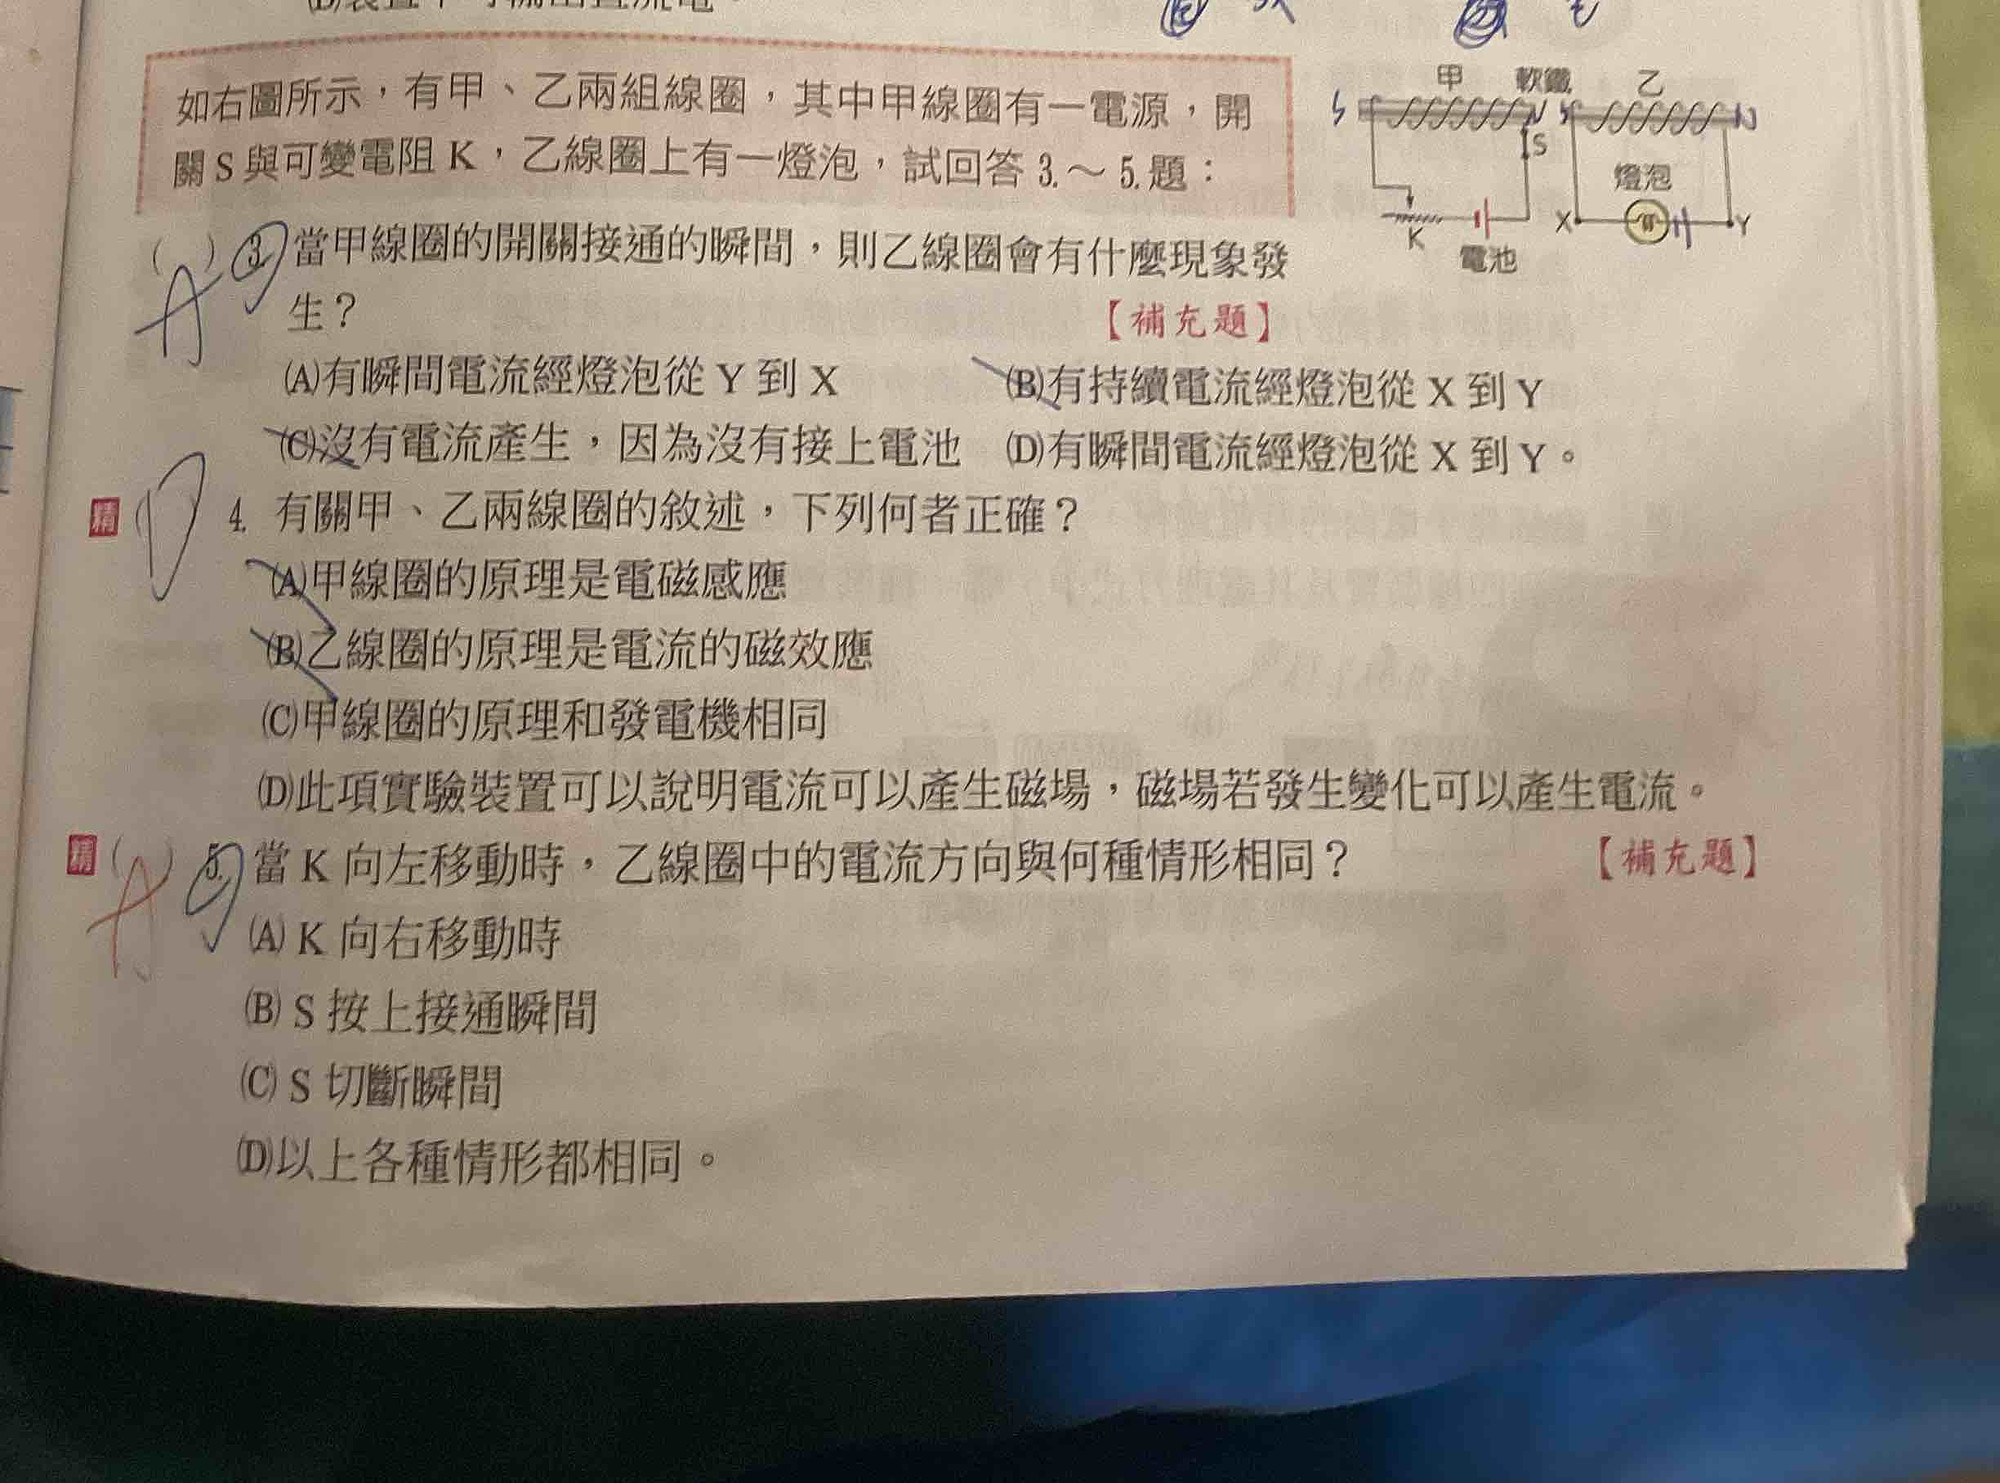 如右圖所示，有甲、乙兩組線圈，其中甲線圈有一電源，開
關 S 與可變電阻 K，乙線圈上有一燈泡，試回答 3.～ 5. 題：
甲 軟鐵 乙
S N S N
S
燈泡
X Y
K
電池
A ( ) 3. 當甲線圈的開關接通的瞬間，則乙線圈會有什麼現象發
生？ 【補充題】
(A)有瞬間電流經燈泡從 Y 到 X (B)有持續電流經燈泡從 X 到 Y
(C)沒有電流產生，因為沒有接上電池 (D)有瞬間電流經燈泡從 X 到 Y。
精 D 4. 有關甲、乙兩線圈的敘述，下列何者正確？
(A)甲線圈的原理是電磁感應
(B)乙線圈的原理是電流的磁效應
(C)甲線圈的原理和發電機相同
(D)此項實驗裝置可以說明電流可以產生磁場，磁場若發生變化可以產生電流。
精 ( ) A 5. 當 K 向左移動時，乙線圈中的電流方向與何種情形相同？ 【補充題】
(A) K 向右移動時
(B) S 按上接通瞬間
(C) S 切斷瞬間
(D)以上各種情形都相同。